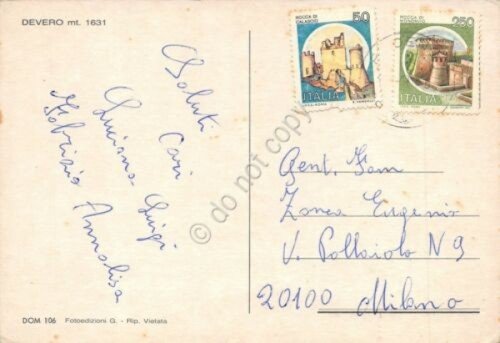 DEVERO mt. 1631
Saluti Cari
Luciana Luigi
Fabrizio Annalisa
ROCCA DI
CALASCIO
50
ITALIA
250
ITALIA
Gent. Fam
Zonca Eugenio
V. Pollaiolo N 9
20100 Milano
DOM 106 Fotoedizioni G. - Rip. Vietata
© do not copy